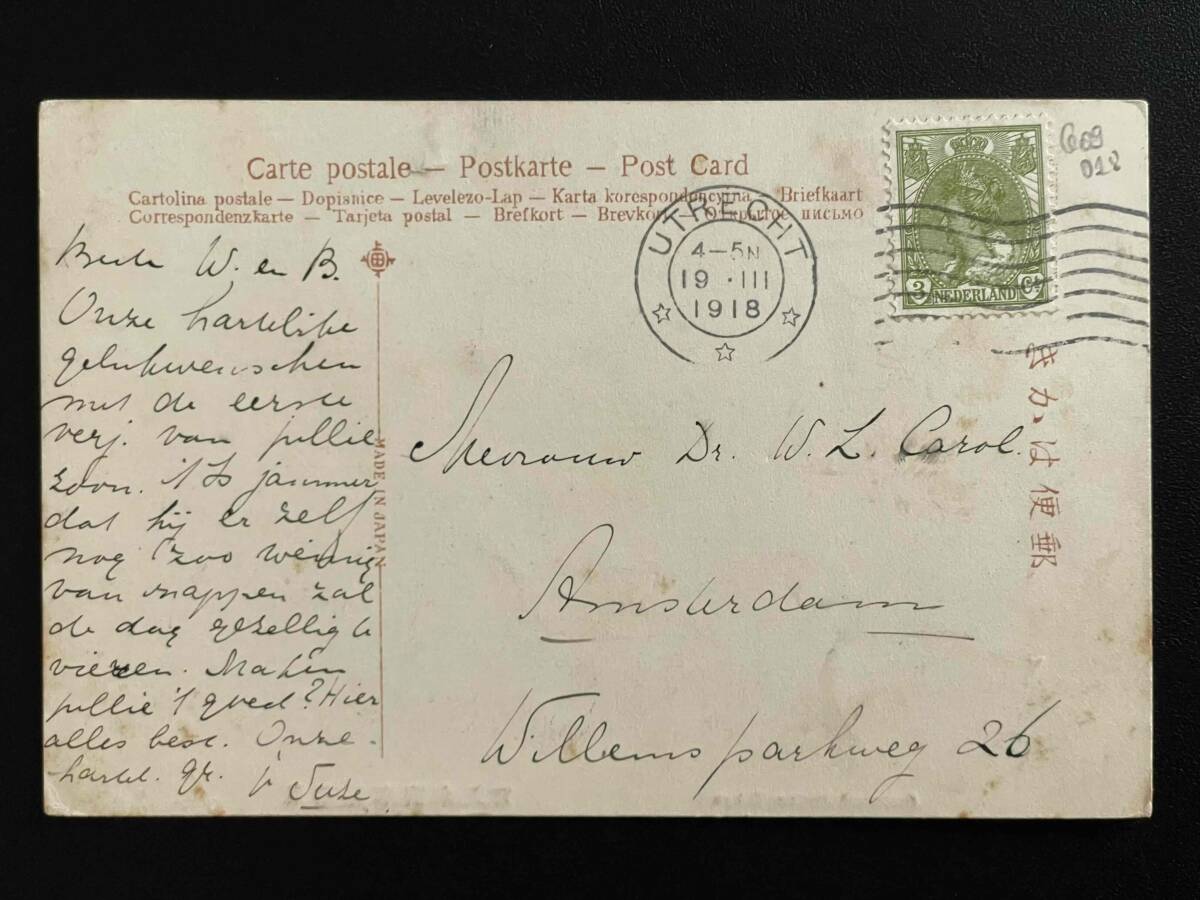 Carte postale — Postkarte — Post Card
Cartolina postale — Dopisnice — Levelezo-Lap — Karta korespondencyjna — Briefkaart
Correspondenzkarte — Tarjeta postal — Brefkort — Brevkort — Открытое письмо
UTRECHT
4–5N
19 . III
1918
3 NEDERLAND Ct
609
012
Beste W. en B.
Onze hartelijke
gelukwenschen
met de eerste
verj. van jullie
zoon. 't Is jammer
dat hij er zelf
nog zoo weinig
van snappen zal
de dag gezellig te
vieren. Maken
jullie 't goed? Hier
alles best. Onze
hartel. gr.
Suze
MADE IN JAPAN
Mevrouw Dr. W. L. Carol.
Amsterdam
Willemsparkweg 26
郵便はかき